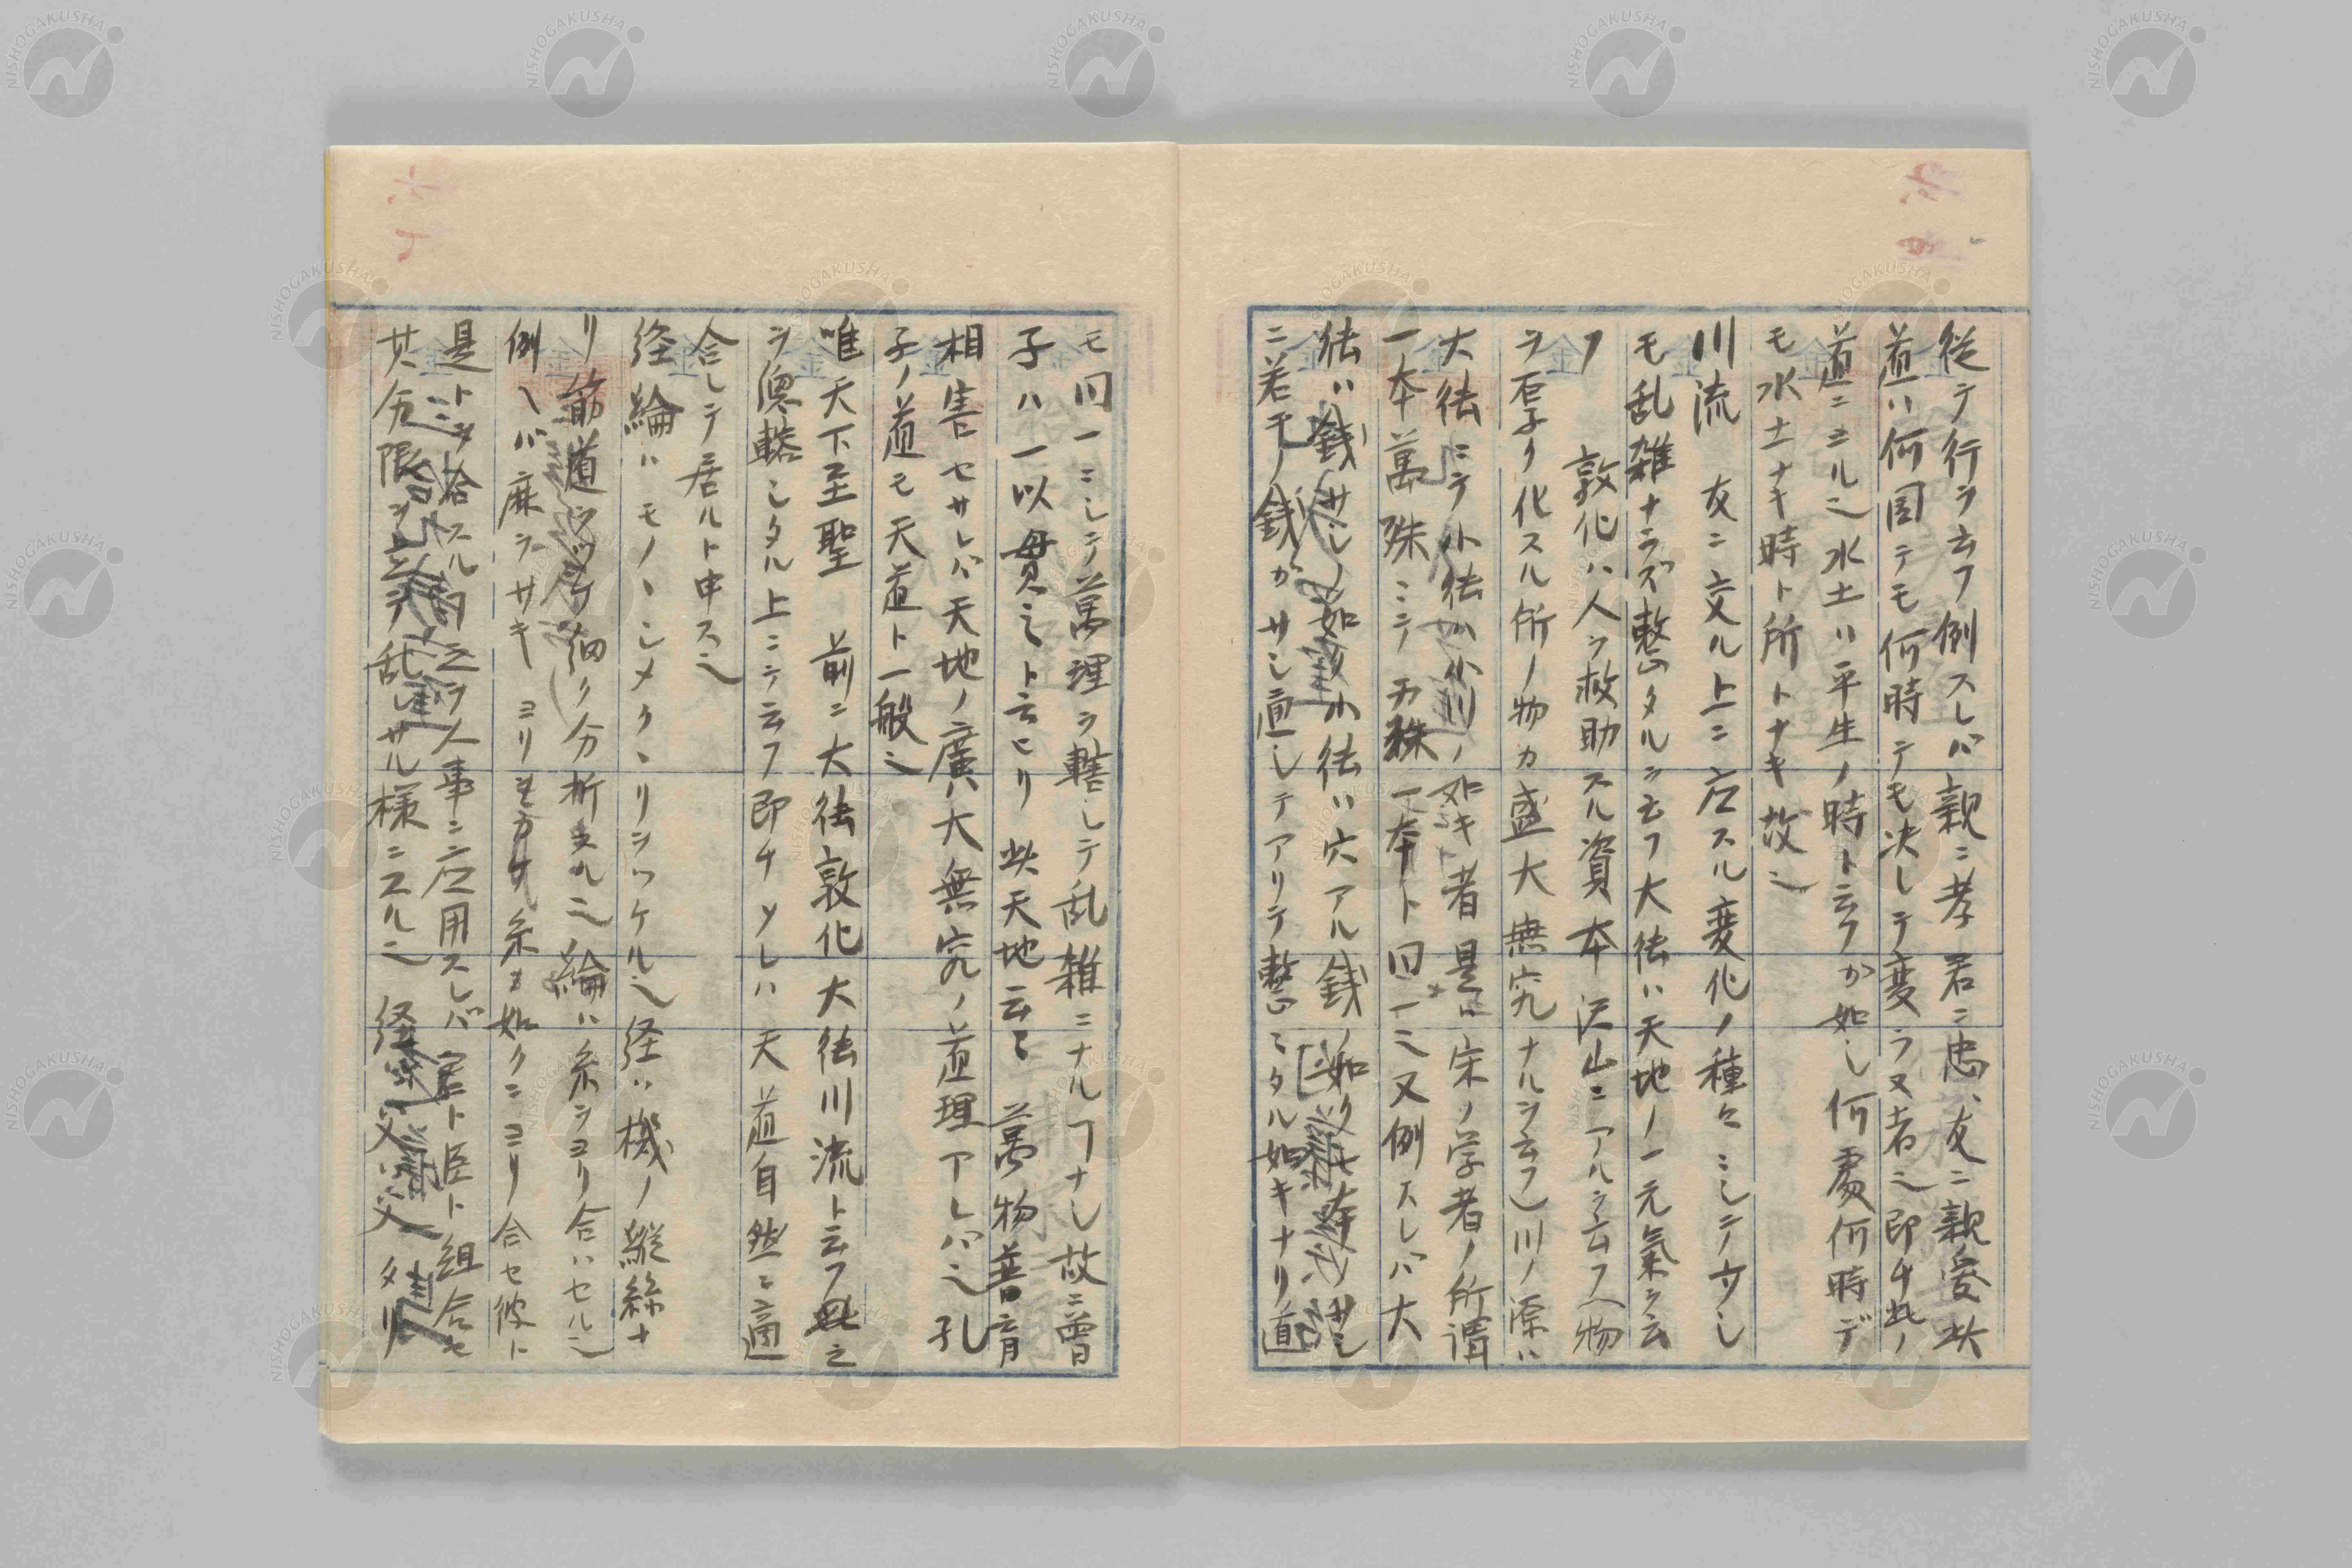 従テ行ヲ云フ例スレバ親ニ孝君ニ忠、友ニ親愛此
道ハ何国テモ何時テモ决シテ変ラヌ者也即チ此ノ
道ニヨル也水土ハ平生ノ時ト云フカ如シ何處何時デ
モ水土ナキ時ト所トナキ故也
川流 友ニ交ル上ニ応スル変化ノ種々ニシテ少シ
モ乱雑ナラズ整タルヲ云フ大徳ハ天地ノ一元氣ヲ云
フ 敦化ハ人ヲ救助スル資本沢山ニアルヲ云フ物
ヲ厚ク化スル所ノ物カ盛大無究ナルヲ云フ川ノ源ハ
大徳ニテ小徳カ小川ノ如キ者是ハ宋ノ学者ノ所謂
一本萬殊ニテ万殊一本ト同一ニ又例スレバ大
徳ハ銭サシノ如ク小徳ハ穴アル銭ノ如ク
ニ若干ノ銭ガサシ通シテアリテ整ヒタル如キナリ道
モ同一ニシテ萬理ヲ轄シテ乱雑ニナルヿナシ故ニ曽
子ハ一以貫之ト云ヒリ 此天地云々 萬物並育
相害セサレバ天地ノ廣ハ大無究ノ道理アレバ也孔
子ノ道モ天道ト一般也
唯天下至聖 前ニ大徳敦化大徳川流ト云フ此之
ヲ總轄シタル上ニテ云フ即チソレハ天道自然ニ適
合シテ居ルト申ス也
経綸ハモノヽシメクヽリヲツケル也経ハ機ノ縦絲ナ
リ筋道ヲツケ細ク分析スル也綸ハ糸ヲヨリ合ハセル也
例ヘバ麻ヲサキヨリ糸ノ如クニヨリ合セ彼ト
是トヲ拾スル也之ヲ人事ニ応用スレバ君ト臣ト組合セ
其分限ヲ立テ乱レサル様ニスル也 経ハ父ハ父タリ
NISHOGAKUSHA